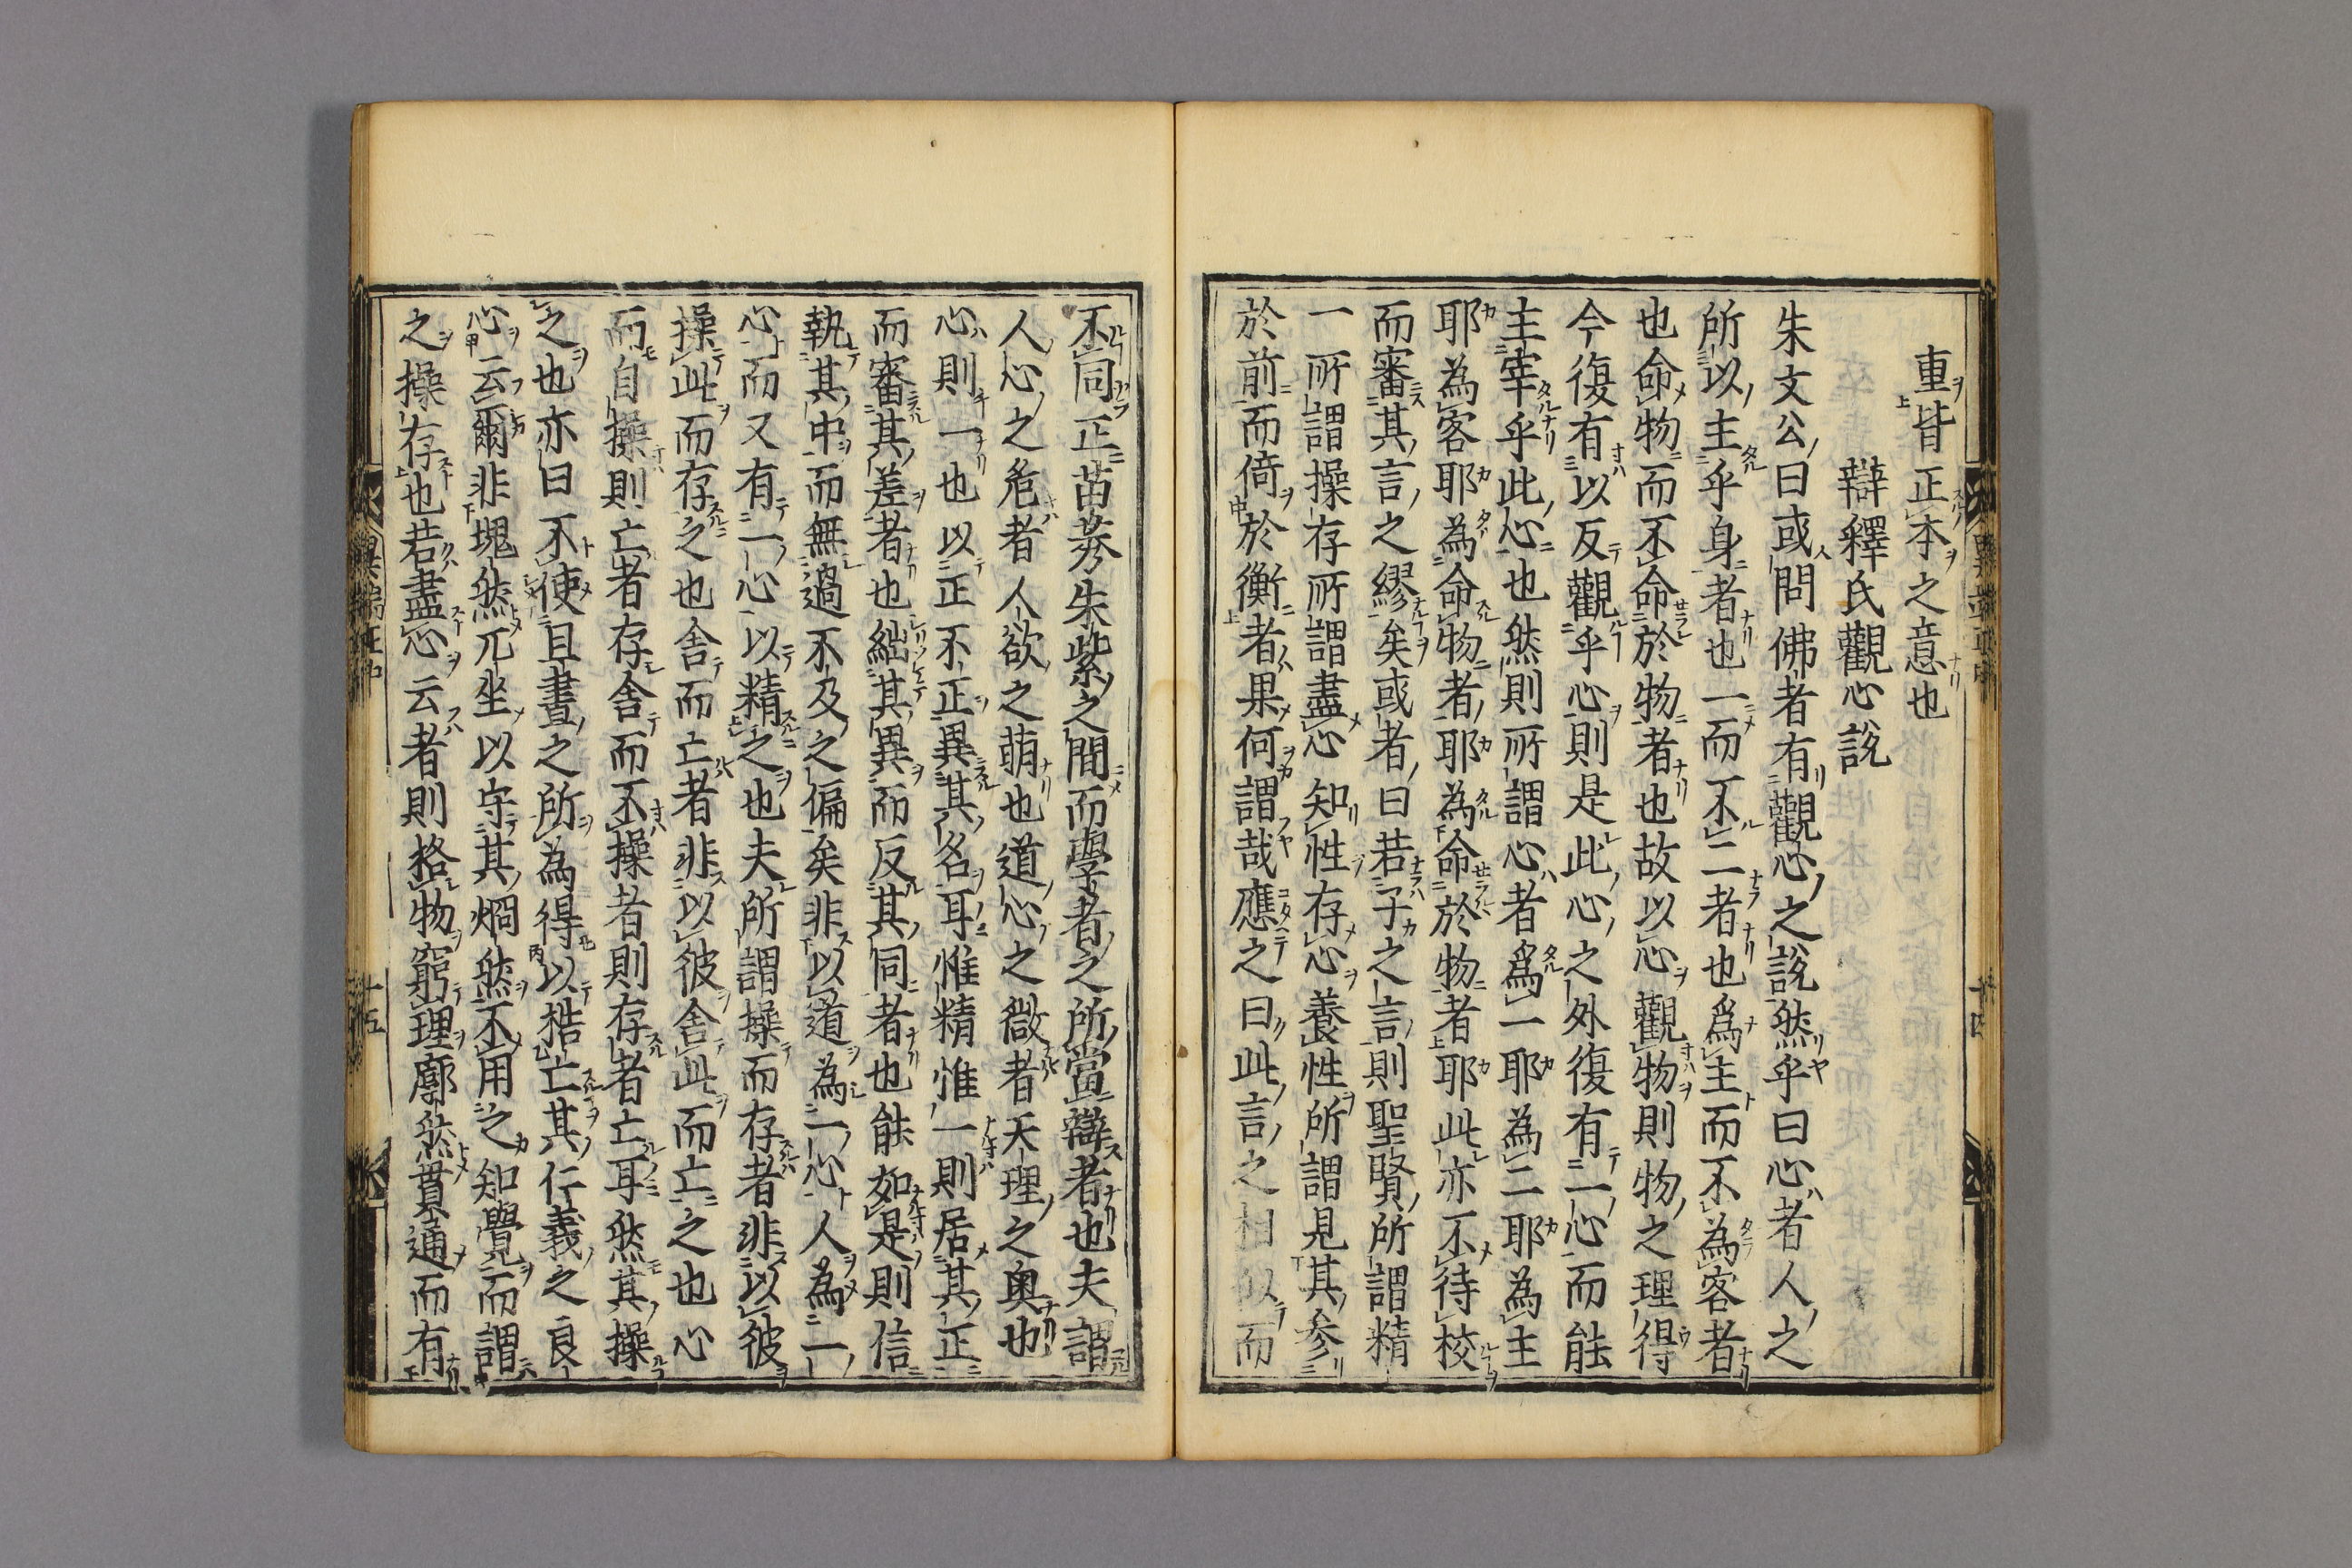 重皆正本之意也
辯釋氏觀心說
朱文公曰或問佛者有觀心之說然乎曰心者人之
所以主乎身者也一而不二者也爲主而不為客者
也命物而不命於物者也故以心觀物則物之理得
今復有以反觀乎心則是此心之外復有一心而能
主宰乎此心也然則所謂心者爲一耶為二耶為主
耶為客耶為命物者耶為命於物者耶此亦不待校
而審其言之繆矣或者曰若子之言則聖賢所謂精
一所謂操存所謂盡心知性存心養性所謂見其参
於前而倚於衡者果何謂哉應之曰此言之相似而
不同正苗莠朱紫之間而學者之所當辯者也夫謂
人心之危者人欲之萌也道心之微者天理之奥也
心則一也以正不正異其名耳惟精惟一則居其正
而審其差者也絀其異而反其同者也能如是則信
執其中而無過不及之偏矣非以道為一心人為一
心而又有一心以精之也夫所謂操而存者非以彼
操此而存之也舍而亡者非以彼舍此而亡之也心
而自操則亡者存舍而不操者則存者亡耳然其操
之也亦曰不使旦晝之所為得以梏亡其仁義之良
心云爾非塊然兀坐以守其烱然不用之知覺而謂
之操存也若盡心云者則格物窮理廓然貫通而有
十四
十五